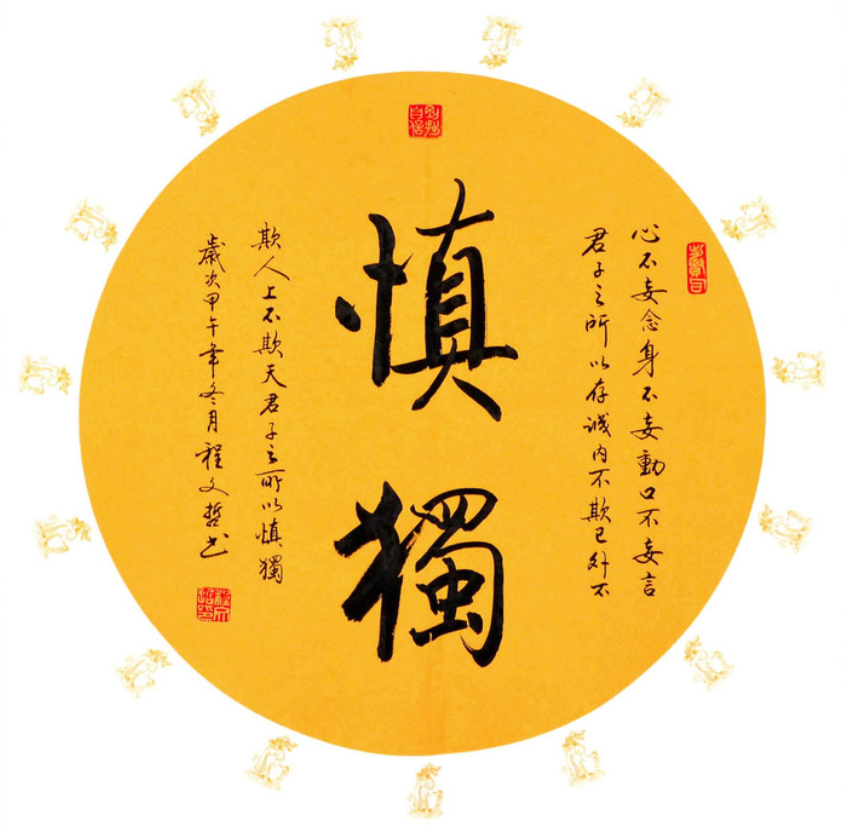 心不妄念身不妄動口不妄言
君子之所以存誠内不欺已外不
慎獨
欺人上不欺天君子之所以慎獨
歲次甲午年冬月程文哲书
程文哲印